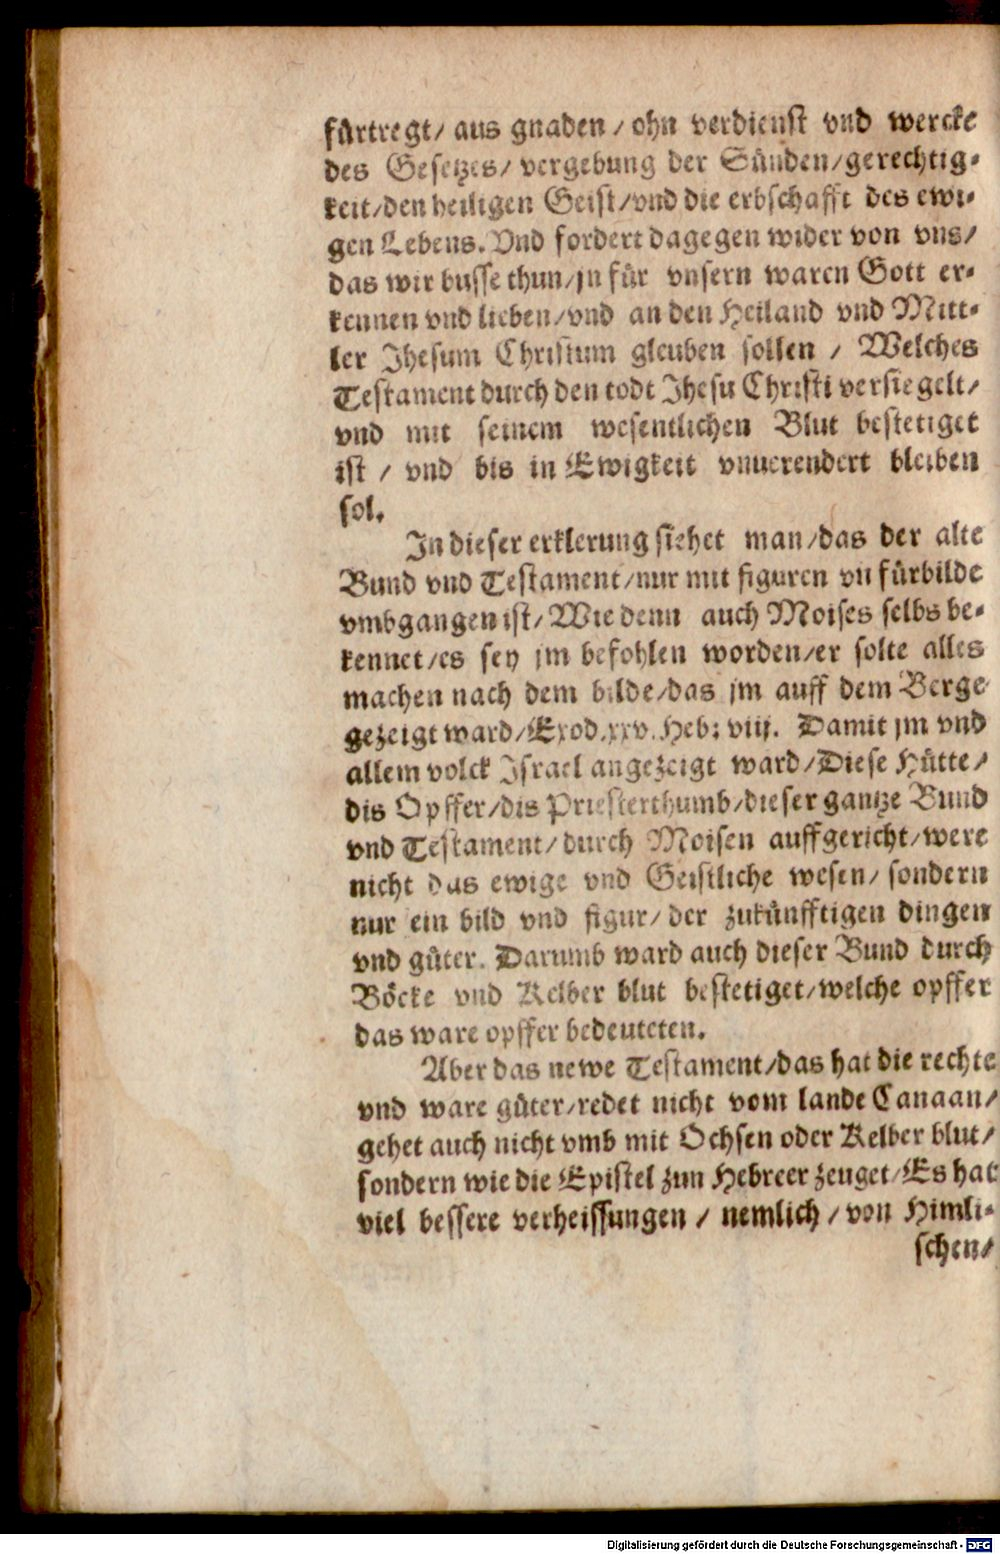 fürtregt/ aus gnaden / ohn verdienst vnd wercke
des Gesetzes/ vergebung der Sünden/gerechtig-
keit/den heiligen Geist/vnd die erbschafft des ewi-
gen Lebens. Vnd fordert dagegen wider von vns/
das wir busse thun/jn für vnsern waren Gott er-
kennen vnd lieben/vnd an den Heiland vnd Mitt-
ler Jhesum Christum gleuben sollen / Welches
Testament durch den todt Jhesu Christi versiegelt/
vnd mit seinem wesentlichen Blut bestetiget
ist / vnd bis in Ewigkeit vnuerendert bleiben
sol.
In dieser erklerung siehet man/das der alte
Bund vnd Testament/nur mit figuren vñ fürbilde
vmbgangen ist/ Wie denn auch Moises selbs be-
kennet/es sey jm befohlen worden/er solte alles
machen nach dem bilde/das jm auff dem Berge
gezeigt ward/Exod.xxv. Heb: viij. Damit jm vnd
allem volck Israel angezeigt ward/Diese Hütte/
dis Opffer/dis Priesterthumb/dieser gantze Bund
vnd Testament/durch Moisen auffgericht/were
nicht das ewige vnd Geistliche wesen/ sondern
nur ein bild vnd figur/ der zukünfftigen dingen
vnd güter. Darumb ward auch dieser Bund durch
Böcke vnd Kelber blut bestetiget/welche opffer
das ware opffer bedeuteten.
Aber das newe Testament/das hat die rechte
vnd ware güter/redet nicht vom lande Canaan/
gehet auch nicht vmb mit Ochsen oder Kelber blut/
sondern wie die Epistel zun Hebreer zeuget/Es hat
viel bessere verheissungen / nemlich / von Himli-
schen/
Digitalisierung gefördert durch die Deutsche Forschungsgemeinschaft - DFG